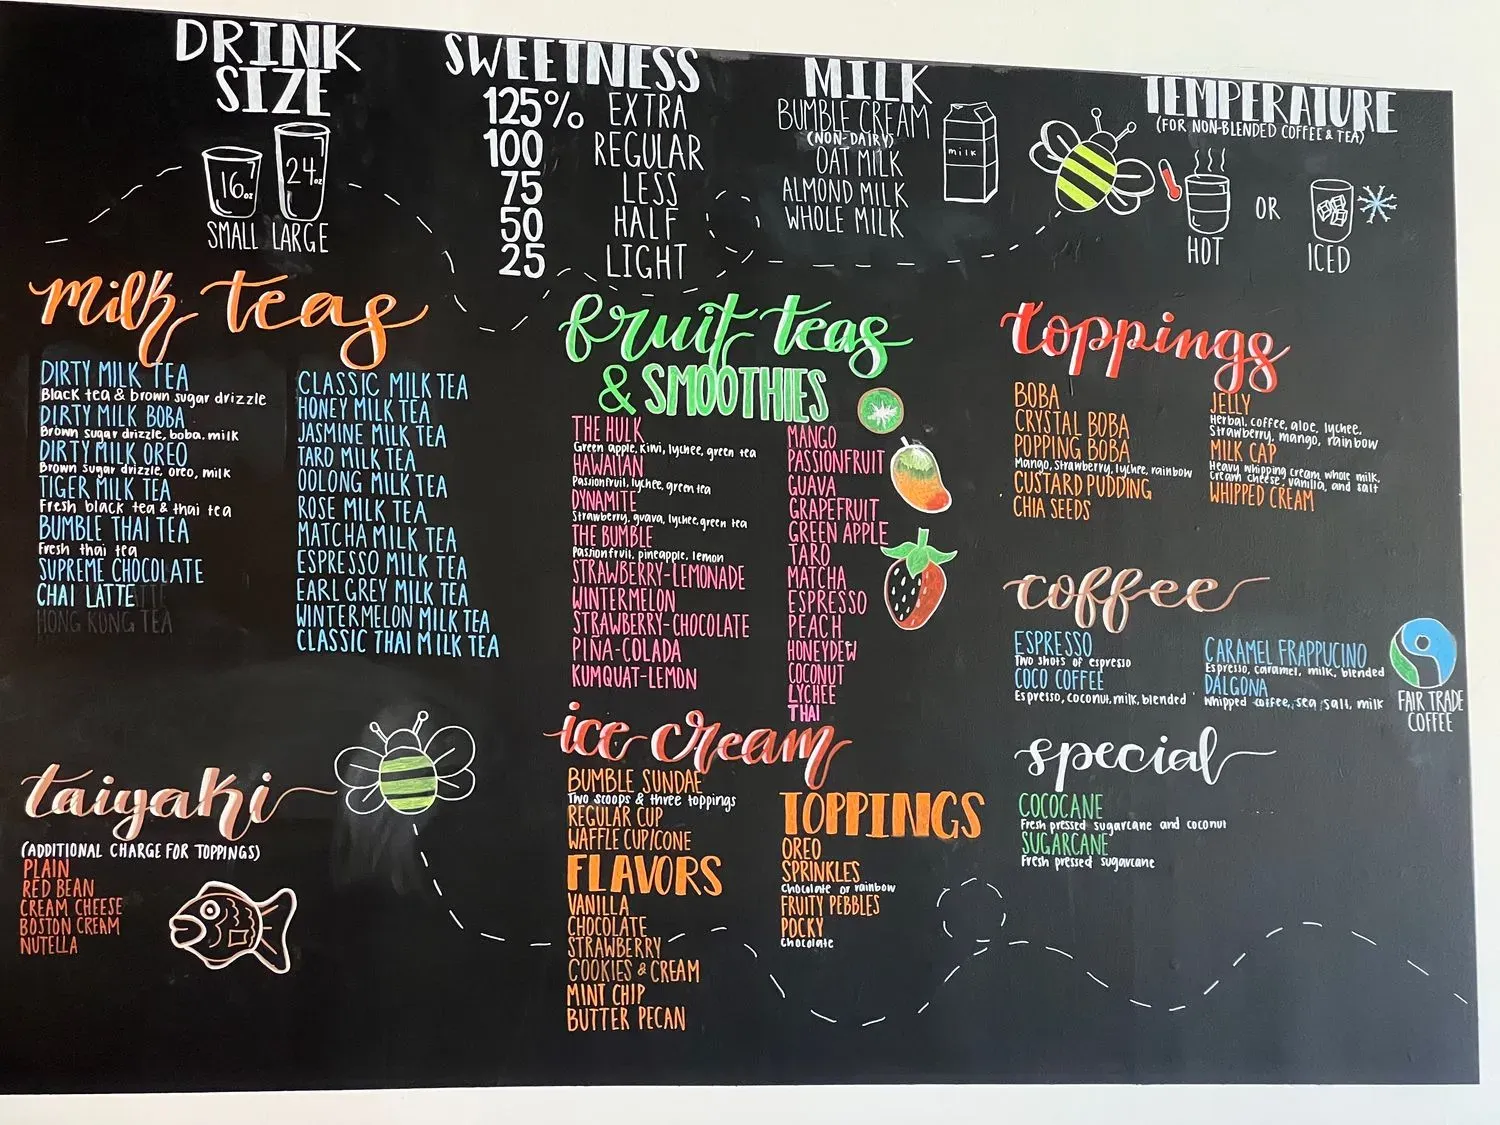 DRINK
SIZE
16oz
24oz
SMALL LARGE
SWEETNESS
125% EXTRA
100 REGULAR
75 LESS
50 HALF
25 LIGHT
MILK
BUMBLE CREAM
(NON-DAIRY)
OAT MILK
ALMOND MILK
WHOLE MILK
milk
TEMPERATURE
(FOR NON-BLENDED COFFEE & TEA)
HOT
OR
ICED
milk teas
DIRTY MILK TEA
Black tea & brown sugar drizzle
DIRTY MILK BOBA
Brown sugar drizzle, boba, milk
DIRTY MILK OREO
Brown sugar drizzle, oreo, milk
TIGER MILK TEA
Fresh black tea & thai tea
BUMBLE THAI TEA
Fresh thai tea
SUPREME CHOCOLATE
CHAI LATTE
HONG KONG TEA
CLASSIC MILK TEA
HONEY MILK TEA
JASMINE MILK TEA
TARO MILK TEA
OOLONG MILK TEA
ROSE MILK TEA
MATCHA MILK TEA
ESPRESSO MILK TEA
EARL GREY MILK TEA
WINTERMELON MILK TEA
CLASSIC THAI MILK TEA
fruit teas
& SMOOTHIES
THE HULK
Green apple, kiwi, lychee, green tea
HAWAIIAN
Passionfruit, lychee, green tea
DYNAMITE
Strawberry, guava, lychee, green tea
THE BUMBLE
Passionfruit, pineapple, lemon
STRAWBERRY-LEMONADE
WINTERMELON
STRAWBERRY-CHOCOLATE
PIÑA-COLADA
KUMQUAT-LEMON
MANGO
PASSIONFRUIT
GUAVA
GRAPEFRUIT
GREEN APPLE
TARO
MATCHA
ESPRESSO
PEACH
HONEYDEW
COCONUT
LYCHEE
THAI
toppings
BOBA
CRYSTAL BOBA
POPPING BOBA
Mango, strawberry, lychee, rainbow
CUSTARD PUDDING
CHIA SEEDS
JELLY
Herbal, coffee, aloe, lychee,
Strawberry, mango, rainbow
MILK CAP
Heavy whipping cream whole milk,
cream cheese, vanilla, and salt
WHIPPED CREAM
coffee
ESPRESSO
Two shots of espresso
COCO COFFEE
Espresso, coconut, milk, blended
CARAMEL FRAPPUCINO
Espresso, caramel, milk, blended
DALGONA
Whipped coffee, sea salt, milk
FAIR TRADE
COFFEE
taiyaki
(ADDITIONAL CHARGE FOR TOPPINGS)
PLAIN
RED BEAN
CREAM CHEESE
BOSTON CREAM
NUTELLA
ice cream
BUMBLE SUNDAE
Two scoops & three toppings
REGULAR CUP
WAFFLE CUP/CONE
FLAVORS
VANILLA
CHOCOLATE
STRAWBERRY
COOKIES & CREAM
MINT CHIP
BUTTER PECAN
TOPPINGS
OREO
SPRINKLES
Chocolate or rainbow
FRUITY PEBBLES
POCKY
Chocolate
special
COCOCANE
Fresh pressed sugarcane and coconut
SUGARCANE
Fresh pressed sugarcane